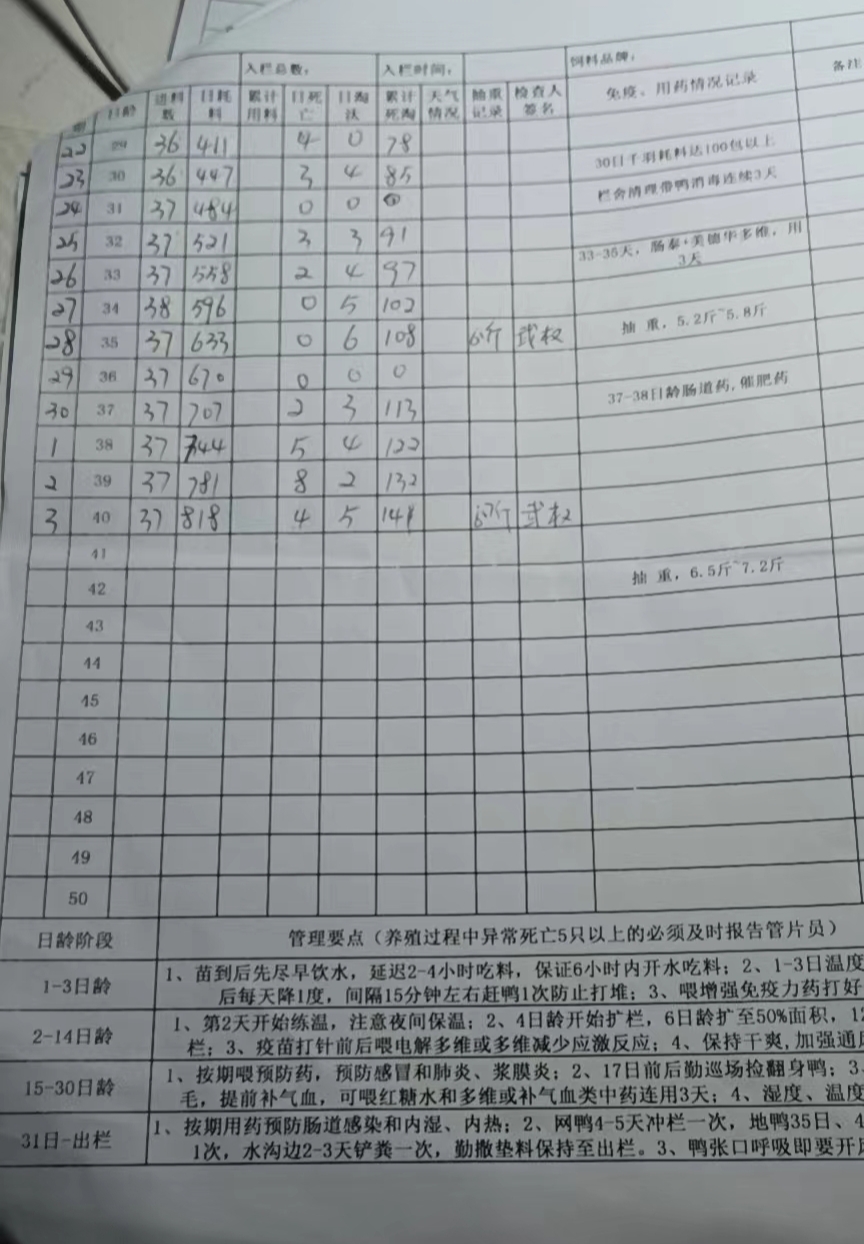 入栏总数： 入栏时间： 饲料品牌：
期 日龄 进料数 日耗料 累计用料 日死亡 日淘汰 累计死淘 天气情况 抽重记录 检查人签名 免疫、用药情况记录 备注
22 29 36 411 4 0 78
23 30 36 447 3 4 85 30日千羽耗料达100包以上
24 31 37 484 0 0 0 栏舍清理带鸭消毒连续3天
25 32 37 521 3 3 91
26 33 37 558 2 4 97 33-35天，肠泰+美德华多维，用3天
27 34 38 596 0 5 102
28 35 37 633 0 6 108 6斤 武权 抽 重，5.2斤~5.8斤
29 36 37 670 0 0 0
30 37 37 707 2 3 113 37-38日龄肠道药,催肥药
1 38 37 744 5 4 122
2 39 37 781 8 2 132
3 40 37 818 4 5 141 武权
41
42 抽 重，6.5斤~7.2斤
43
44
45
46
47
48
49
50
日龄阶段 管理要点（养殖过程中异常死亡5只以上的必须及时报告管片员）
1-3日龄 1、苗到后先尽早饮水，延迟2-4小时吃料，保证6小时内开水吃料；2、1-3日温度
后每天降1度，间隔15分钟左右赶鸭1次防止打堆；3、喂增强免疫力药打好
2-14日龄 1、第2天开始练温，注意夜间保温；2、4日龄开始扩栏，6日龄扩至50%面积，12
栏；3、疫苗打针前后喂电解多维或多维减少应激反应；4、保持干爽,加强通
15-30日龄 1、按期喂预防药，预防感冒和肺炎、浆膜炎；2、17日前后勤巡场捡翻身鸭；3、
毛，提前补气血，可喂红糖水和多维或补气血类中药连用3天；4、湿度、温度
31日-出栏 1、按期用药预防肠道感染和内湿、内热；2、网鸭4-5天冲栏一次，地鸭35日、4
1次，水沟边2-3天铲粪一次，勤撒垫料保持至出栏。3、鸭张口呼吸即要开